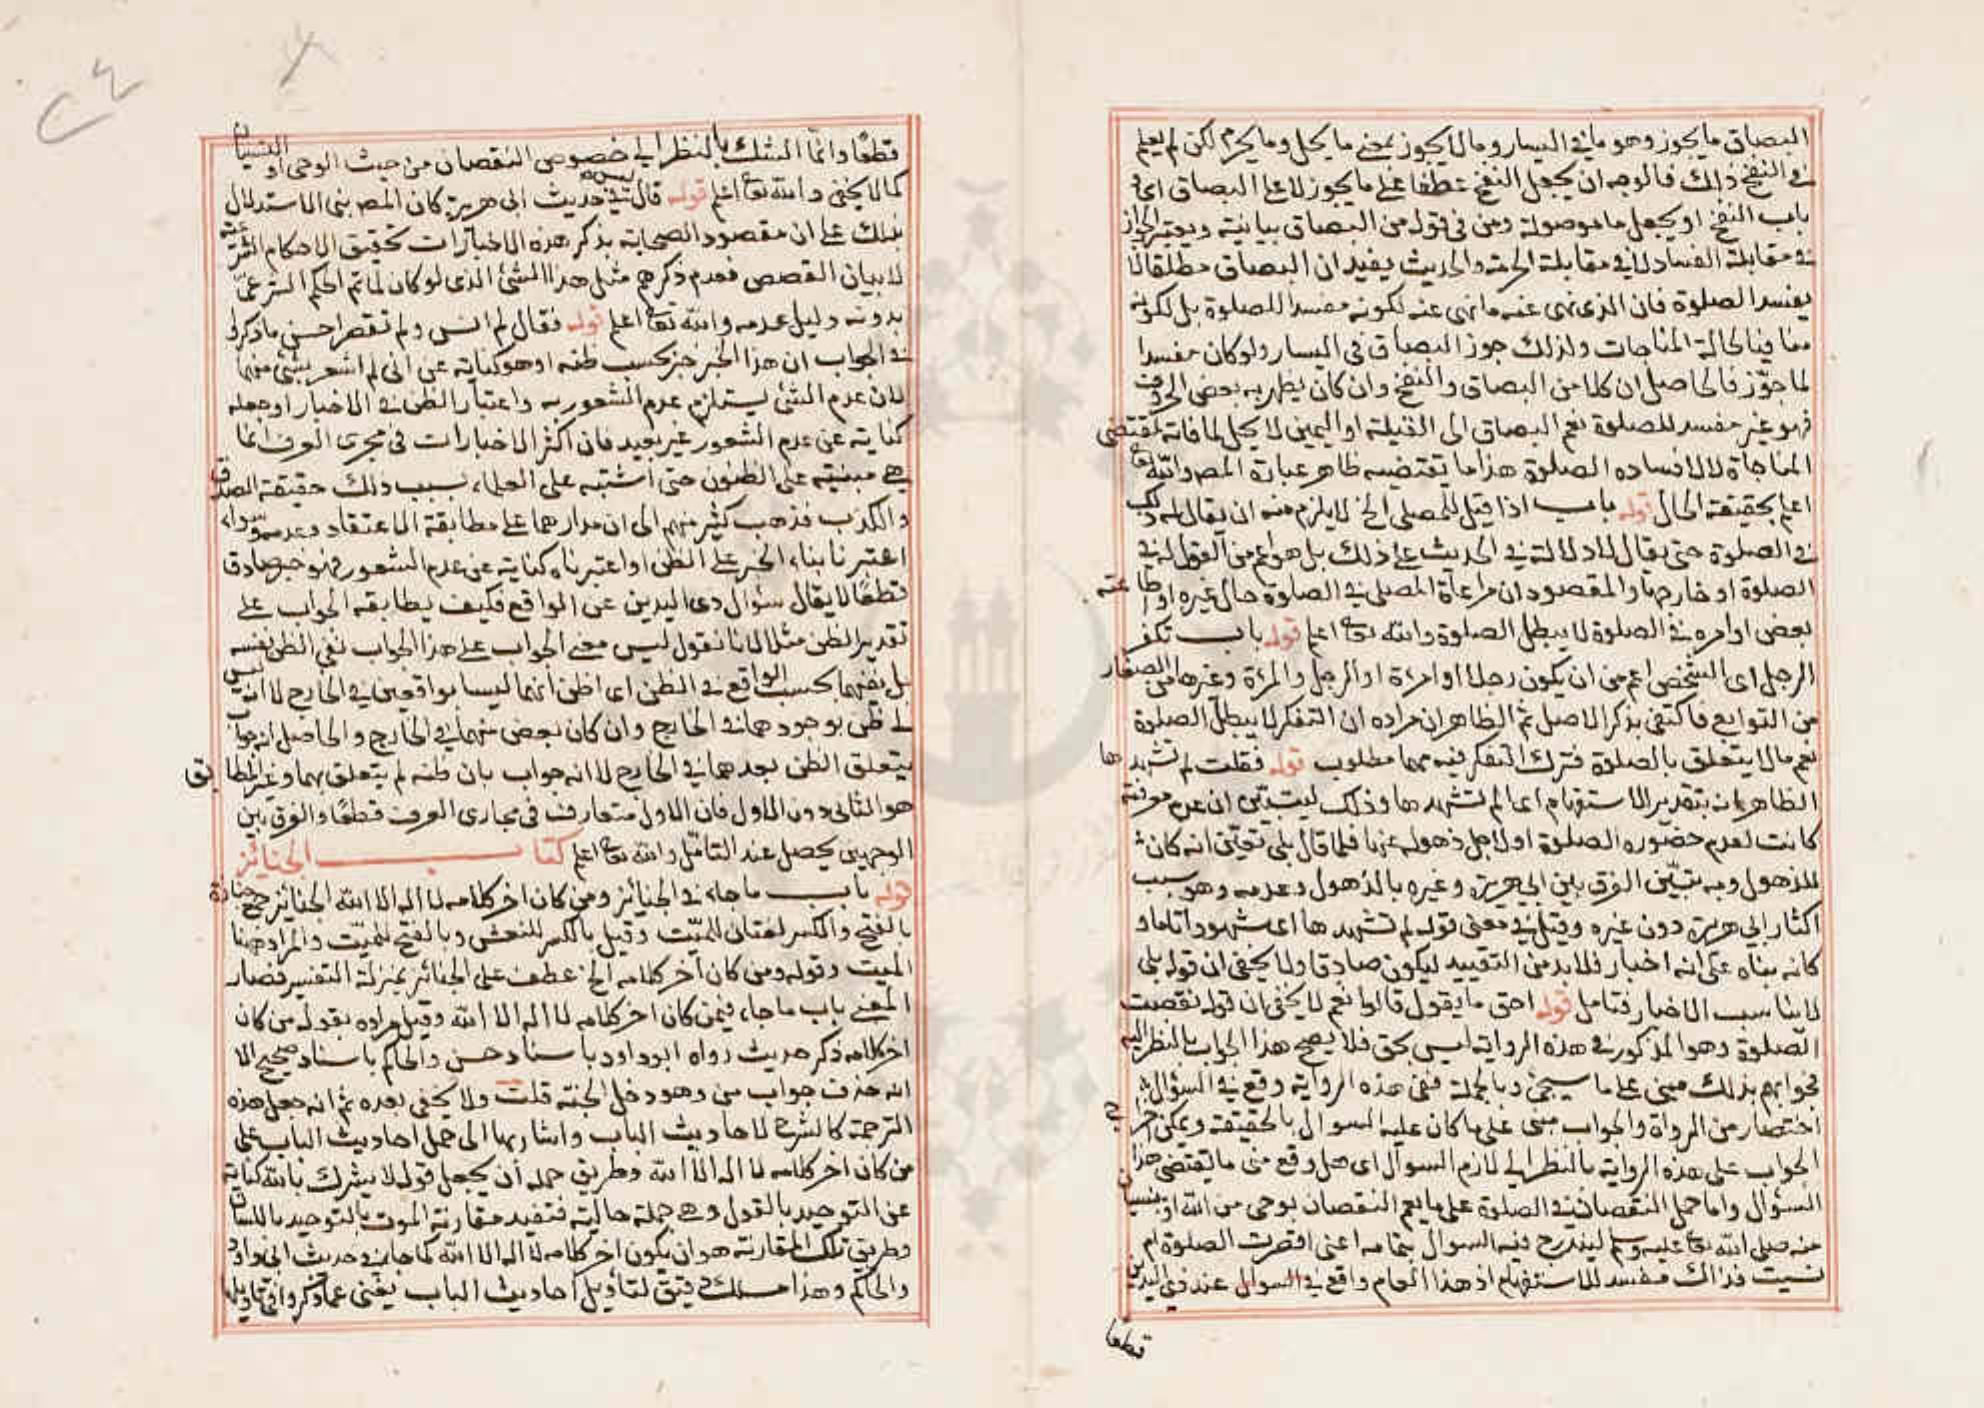 البصاق ما يجوز وهو ما في اليسار وما لا يجوز بمعنى ما يحل وما يحرم لكن لم يعلم
في النفخ ذلك فالوجه ان يجعل النفخ عطفا على ما يجوز لا على البصاق اى و
باب النفخ او يجعل ما موصولة ومن في قوله من البصاق بيانية ويعتبر الجواز
في مقابلة الفساد لا في مقابلة الحرمة والحديث يفيد ان البصاق مطلقا لا
يفسد الصلوة فان الذى نهى عنه ما نهى عنه لكونه مفسدا للصلوة بل لكونه
منافيا لحالة المناجات ولذلك جوز البصاق في اليسار ولو كان مفسدا
لما جوّز فالحاصل ان كلا من البصاق والنفخ وان كان يظهر به بعض الحروف
فهو غير مفسد للصلوة نعم البصاق الى القبلة او اليمين لا يحل لمنافاته لمقتضى
المناجاة لا لافساده الصلوة هذا ما يقتضيه ظاهر عبارة المص والله تعا
اعلم بحقيقة الحال قوله باب اذا قيل للمصلى الخ لا يلزم منه ان يقال له ذلك
في الصلوة حتى يقال لا دلالة في الحديث على ذلك بل هو اعم من القول له في
الصلوة او خارجها والمقصود ان مراعاة المصلى في الصلوة حال غيره او اطاعته
بعض اوامره في الصلوة لا يبطل الصلوة والله تعا اعلم قوله باب تفكر
الرجل اى الشخص اعم من ان يكون رجلا او امرءة او الرجل والمرءة وغيرها من الصغار
من التوابع فاكتفى بذكر الاصل ثم الظاهر ان مراده ان التفكر لا يبطل الصلوة
نعم ما لا يتعلق بالصلوة فترك التفكر فيه مهما مطلوب قوله فقلت لم تشهدها
الظاهر انه بتقدير الاستفهام اى الم تشهدها وذلك ليتبين ان عدم معرفته
كانت لعدم حضوره الصلوة او لاجل ذهوله عنها فلما قال بلى تعيّن انه كان
للذهول وبه يتبيّن الفرق بين ابى هريرة وغيره بالذهول وعدمه وهو سبب
اكثار ابى هريرة دون غيره وقيل في معنى قوله لم تشهدها اى شهودا تاما و
كانه بناه على انه اخبار فلا بد من التقييد ليكون صادقا ولا يخفى ان قوله بلى
لا يناسب الاخبار فتامل قوله احق ما يقول قالوا نعم لا يخفى ان قوله نقصت
الصّلوة وهو المذكور في هذه الرواية ليس بحق فلا يصح هذا الجواب بالنظر اليه
فجوابهم بذلك مبنى على ما سيجئ وبالجملة ففى هذه الرواية وقع في السؤال
اختصار من الرواة والجواب مبنى على ما كان عليه السوال بالحقيقة ويمكن اخراج
الجواب على هذه الرواية بالنظر الى لازم السوال اى هل وقع منى ما يقتضى هذا
السؤال واما حمل النقصان في الصلوة على ما يعم النقصان بوحى من الله او بنسيان
منه صلى الله تعا عليه وسلم ليندرج فيه السوال بتمامه اعنى اقصرت الصلوة ام
نسيت فذاك مفسد للاستفهام اذ هذا العام واقع في السوال عند ذى اليدين
قطعا
قطعًا وانما الشك بالنظر الى خصوص النقصان من حيث الوحى او النسيان
كما لا يخفى والله تعا اعلم قوله قال ليس في حديث ابى هريرة كان المص بنى الاستدلال
بذلك على ان مقصود الصحابة بذكر هذه الاخبارات تحقيق الاحكام الشرعية
لا بيان القصص فعدم ذكرهم مثل هذا الشئ الذى لو كان لما تم الحكم الشرعى
بدونه دليل عدمه والله تعا اعلم قوله فقال لم انس ولم تقصر احسن ما ذكر
في الجواب ان هذا الخبر خبر بحسب ظنه او هو كناية عن انى لم اشعر بشئ منهما
لان عدم الشئ يستلزم عدم الشعور به واعتبار الظن في الاخبار او جعله
كناية عن عدم الشعور غير بعيد فان اكثر الاخبارات في مجرى العرف انما
هي مبنية على الظنون حتى اشتبه على العلماء بسبب ذلك حقيقة الصدق
والكذب فذهب كثير منهم الى ان مدارهما على مطابقة الاعتقاد وعدمه وسواء
اعتبرنا بناء الخبر على الظن او اعتبرناه كناية عن عدم الشعور فهو خبر صادق
قطعًا لا يقال سؤال ذى اليدين عن الواقع فكيف يطابقه الجواب على
تقدير الظن مثلا لانا نقول ليس معنى الجواب على هذا الجواب نفى الظن نفسه
بل نفيهما بحسب الواقع في الظن اى اظن انهما ليسا بواقعين في الخارج لا انه ليس
لى ظن بوجودهما في الخارج وان كان بعض منهما في الخارج والحاصل انه جواب
بتعلق الظن بعدمهما في الخارج لا انه جواب بان ظنه لم يتعلق بهما وغير المطابق
هو الثانى دون الاول فان الاول متعارف في مجارى العرف قطعًا والفرق بين
الوجهين يحصل عند التامّل والله تعا اعلم كتاب الجنائز
قوله باب ما جاء في الجنائز ومن كان اخر كلامه لا اله الا الله الجنائز جمع جنازة
بالفتح والكسر لغتان للميّت وقيل بالكسر للنعش وبالفتح للميّت والمراد ههنا
الميت وقوله ومن كان آخر كلامه الخ عطف على الجنائز بمنزلة التفسير فصار
المعنى باب ما جاء فيمن كان اخر كلامه لا اله الا الله وقيل مراده بقوله من كان
اخر كلامه ذكر حديث رواه ابو داود باسناد حسن والحاكم باسناد صحيح الا
انه حذف جواب من وهو دخل الجنة قلت ولا يخفى بعده ثم انه جعل هذه
الترجمة كالشرح لاحاديث الباب واشار بها الى حمل احاديث الباب على
من كان اخر كلامه لا اله الا الله وطريق حمله أن يجعل قوله لا يشرك بالله كناية
عن التوحيد بالقول وهى جملة حالية فتفيد مقارنة الموت بالتوحيد باللسان
وطريق تلك المقارنة هو ان يكون اخر كلامه لا اله الا الله كما جاء في حديث ابى داود
والحاكم وهذا مسلك دقيق لتأويل احاديث الباب يغنى عما ذكروا في تاويلها